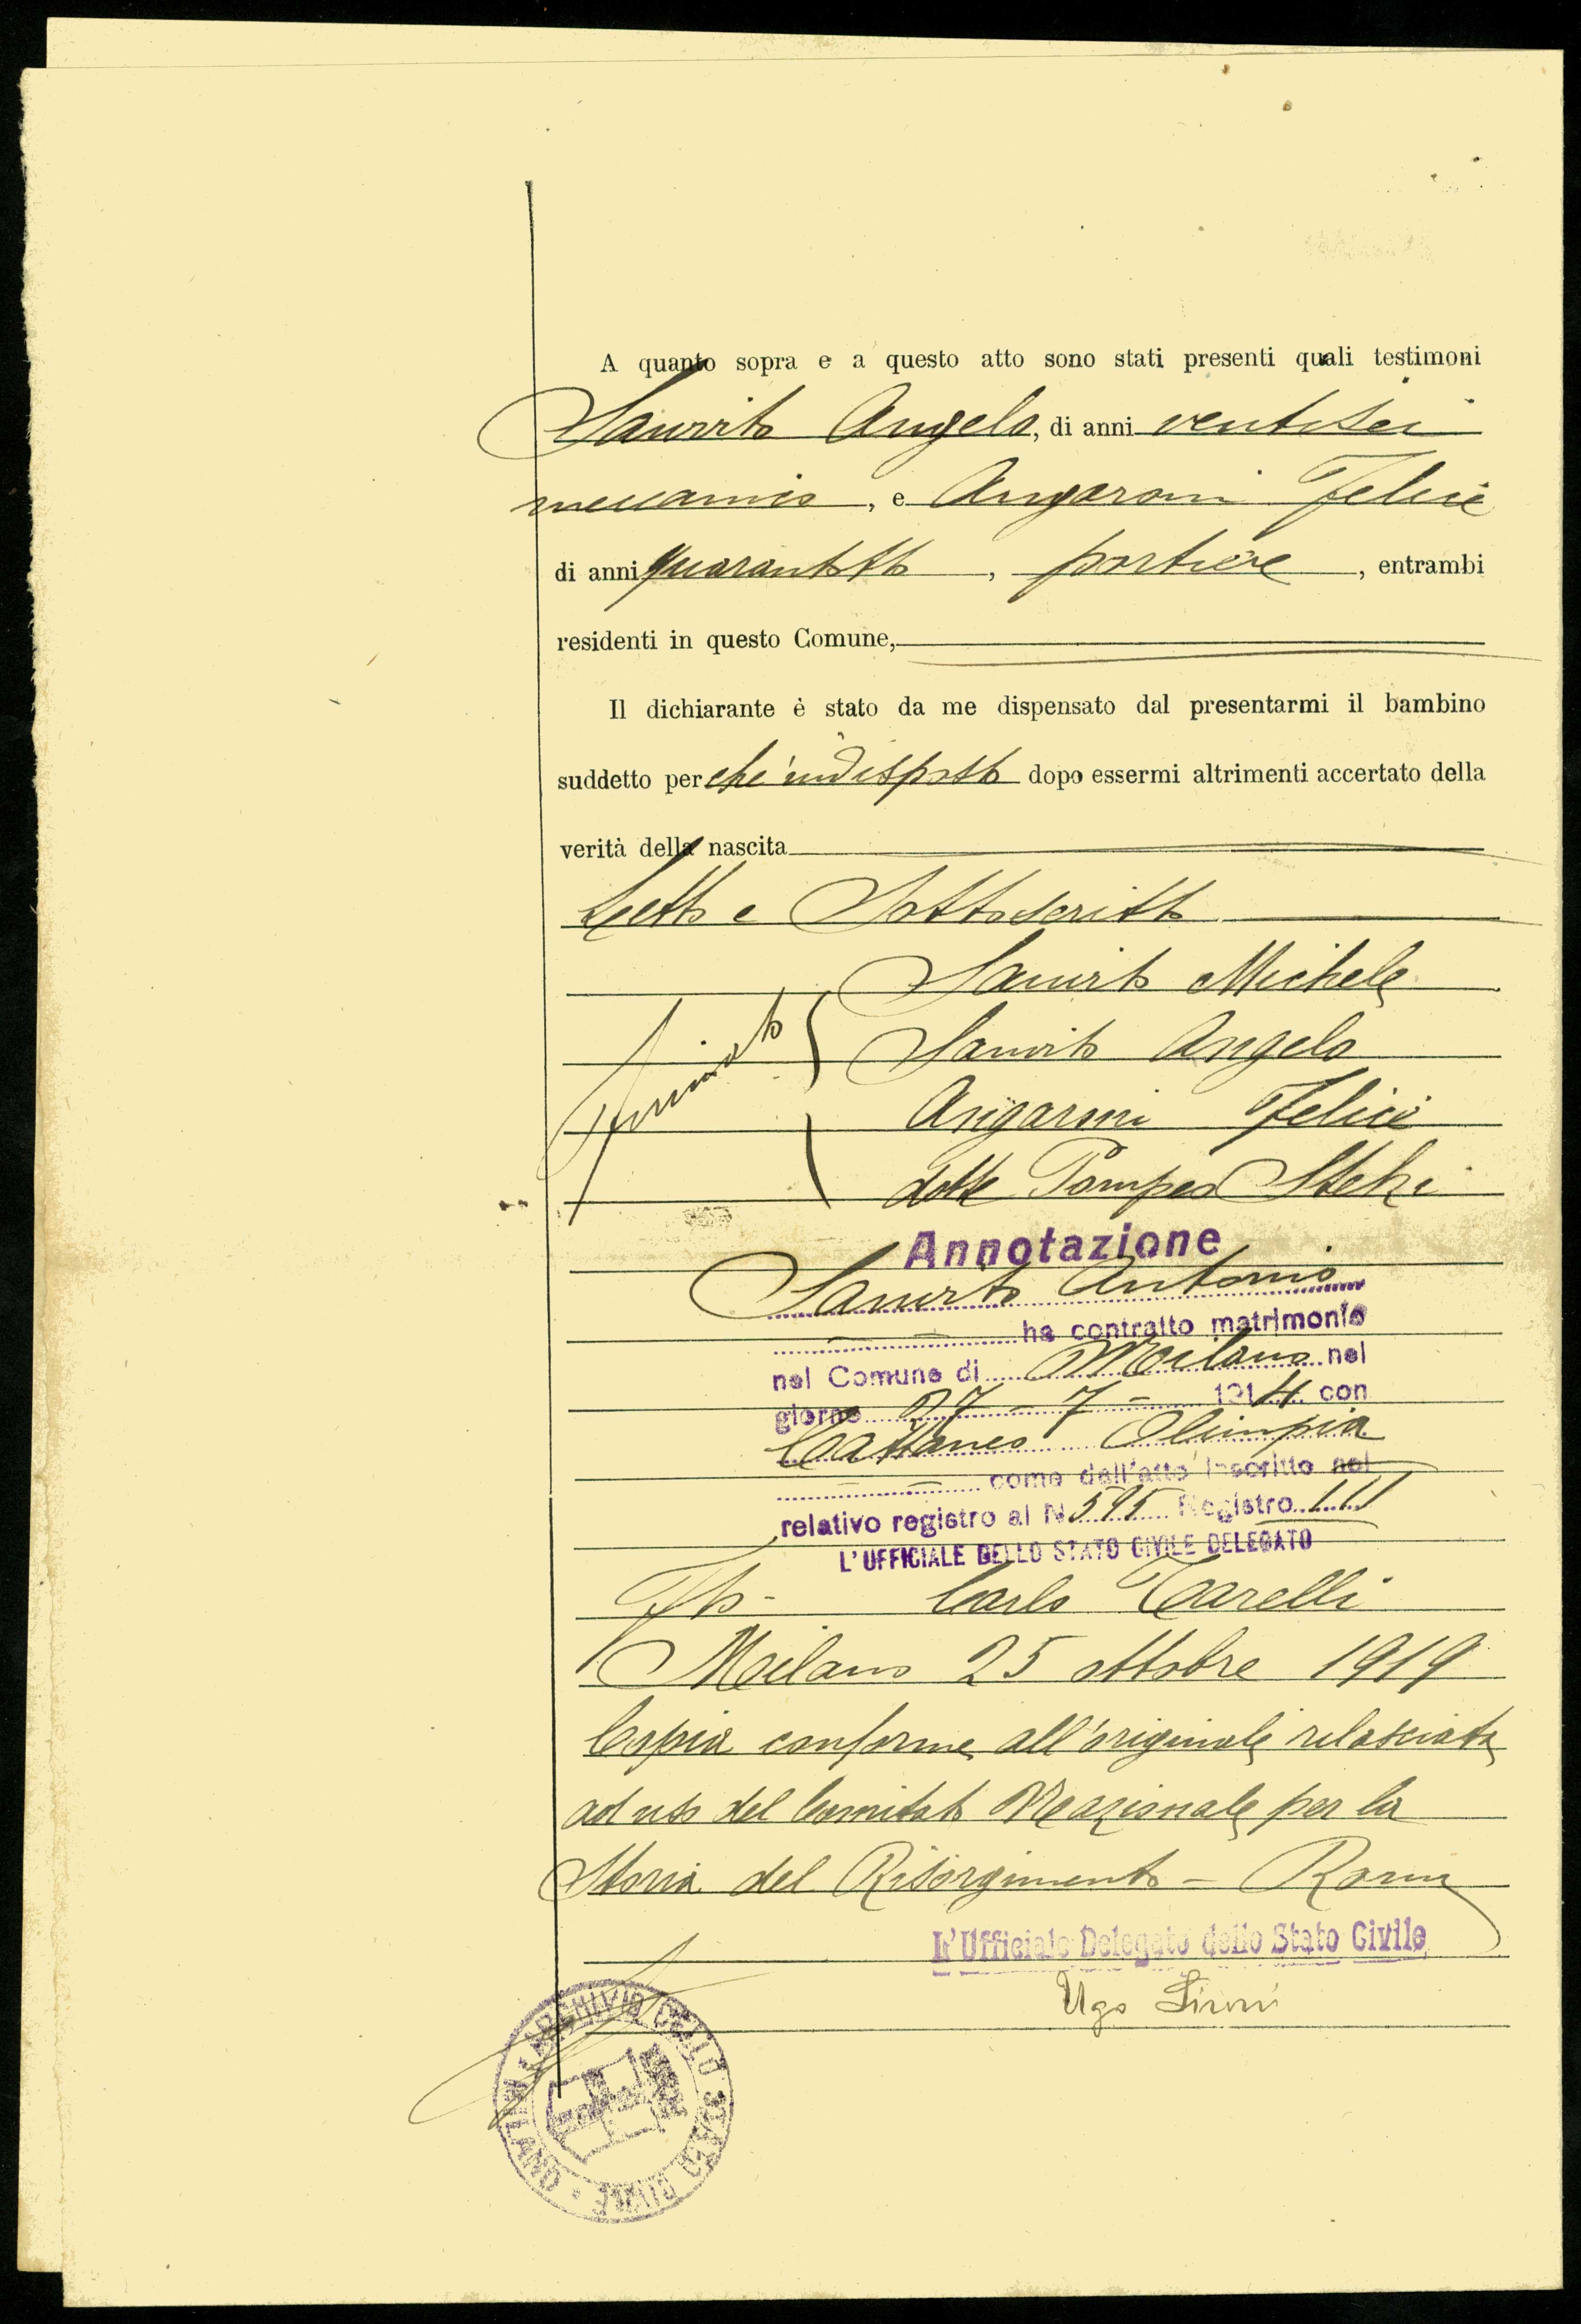 A quanto sopra e a questo atto sono stati presenti quali testimoni
Angelo, di anni ventisei
meccanico, e Angaroni Felice
di anni quarantotto, portiere, entrambi
residenti in questo Comune,
Il dichiarante è stato da me dispensato dal presentarmi il bambino
suddetto perchè indisposto dopo essermi altrimenti accertato della
verità della nascita
Letto e Sottoscritto
Michele
Firmato Angelo
Angaroni Felice
dott Pompeo
Annotazione
Antonio
ha contratto matrimonio
nel Comune di Milano nel
giorno 27 - 7 - 1914 con
Cattaneo Olimpia
come dall'atto inscritto nel
relativo registro al N 595 Registro III
L'UFFICIALE DELLO STATO CIVILE DELEGATO
Fto - Carlo
Milano 25 ottobre 1919
Copia conforme all'originale rilasciata
ad uso del Comitato Nazionale per la
Storia del Risorgimento - Roma
L'Ufficiale Delegato dello Stato Civile
Ugo
ARCHIVIO DELLO STATO CIVILE